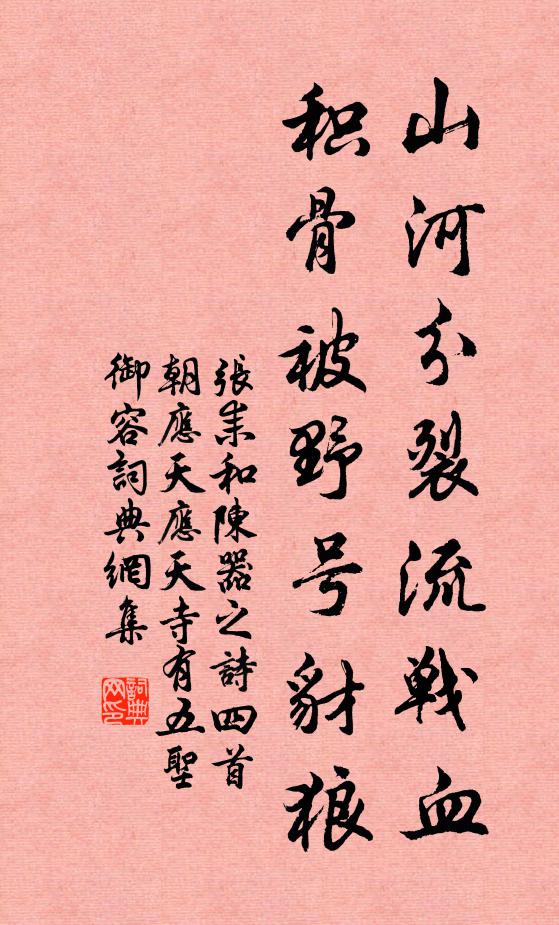 山河分裂流戦血
积骨被野号豺狼
張耒和陳器之詩四首
朝應天應天寺有五聖
御容詞典網集
詞典網印